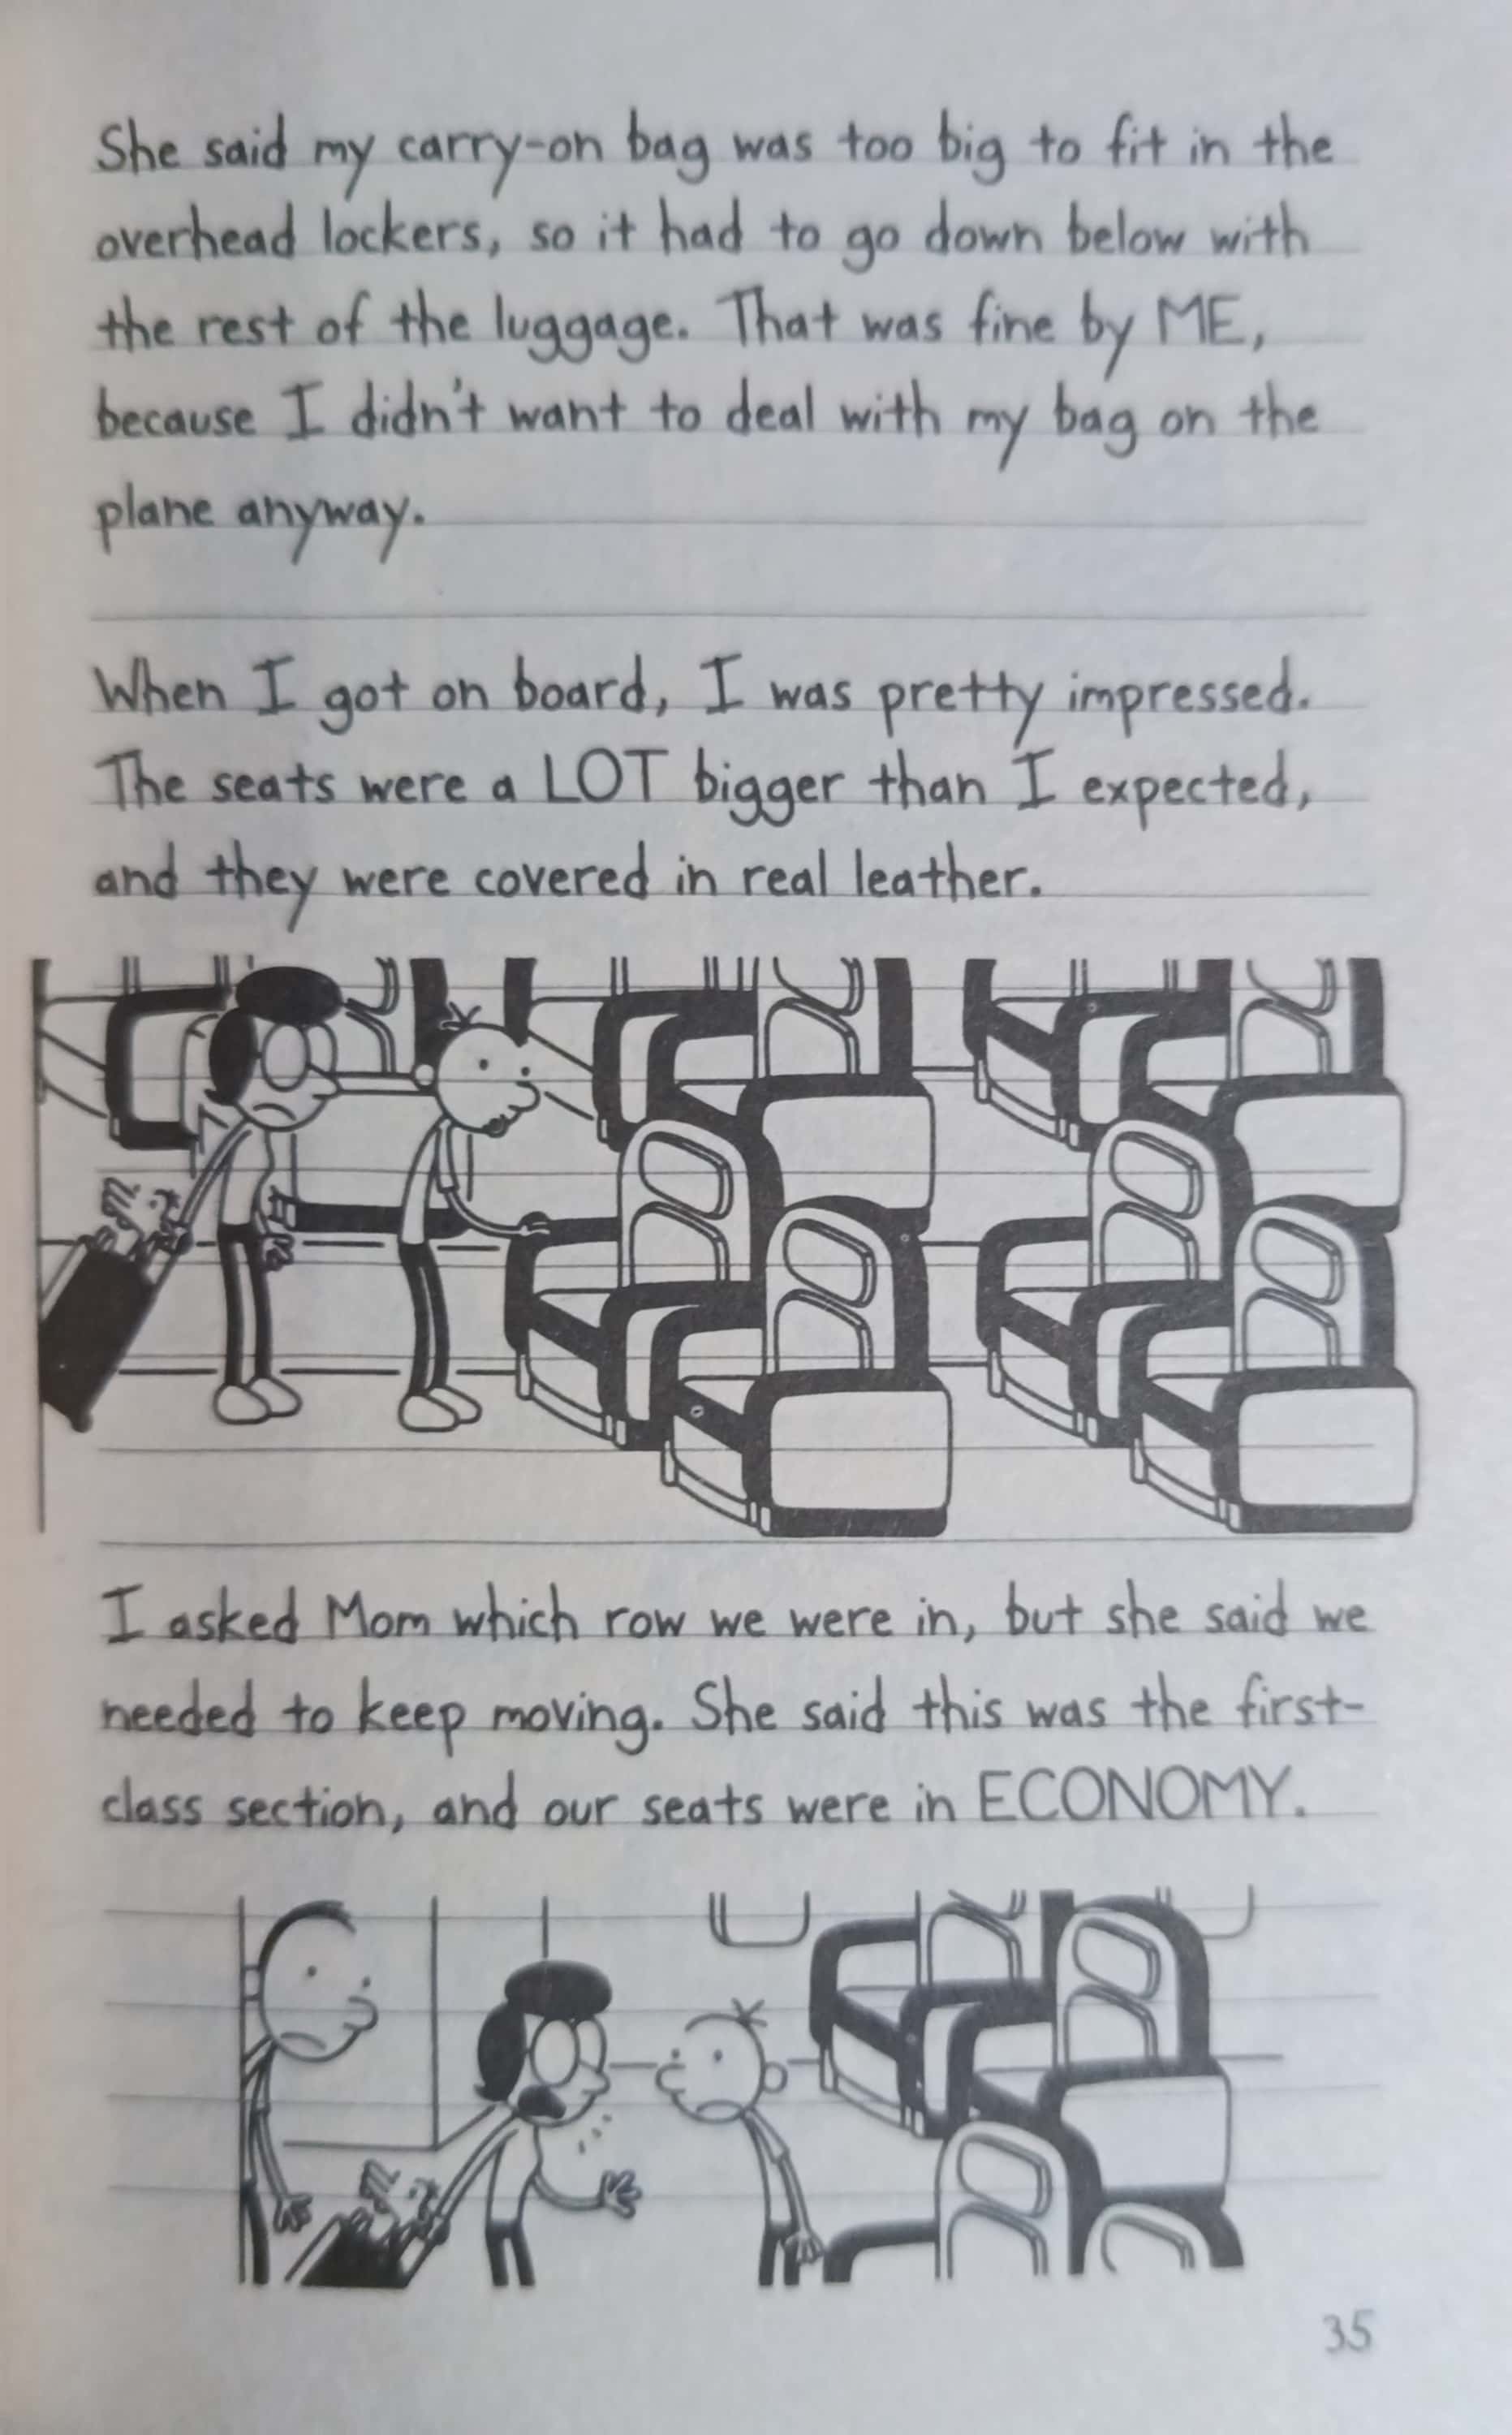 She said my carry-on bag was too big to fit in the
overhead lockers, so it had to go down below with
the rest of the luggage. That was fine by ME,
because I didn't want to deal with my bag on the
plane anyway.
When I got on board, I was pretty impressed.
The seats were a LOT bigger than I expected,
and they were covered in real leather.
I asked Mom which row we were in, but she said we
needed to keep moving. She said this was the first-
class section, and our seats were in ECONOMY.
35